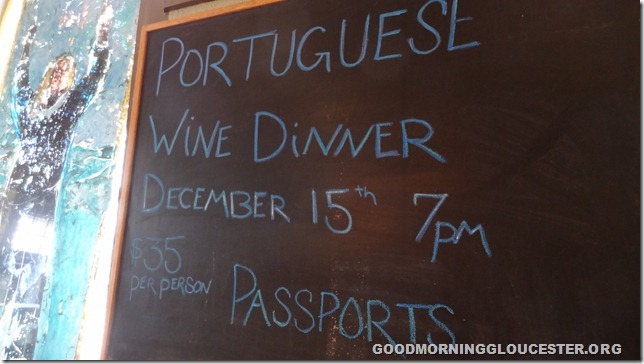 PORTUGUESE
WINE DINNER
DECEMBER 15th 7pm
$35
PER PERSON
PASSPORTS
GOODMORNINGGLOUCESTER.ORG